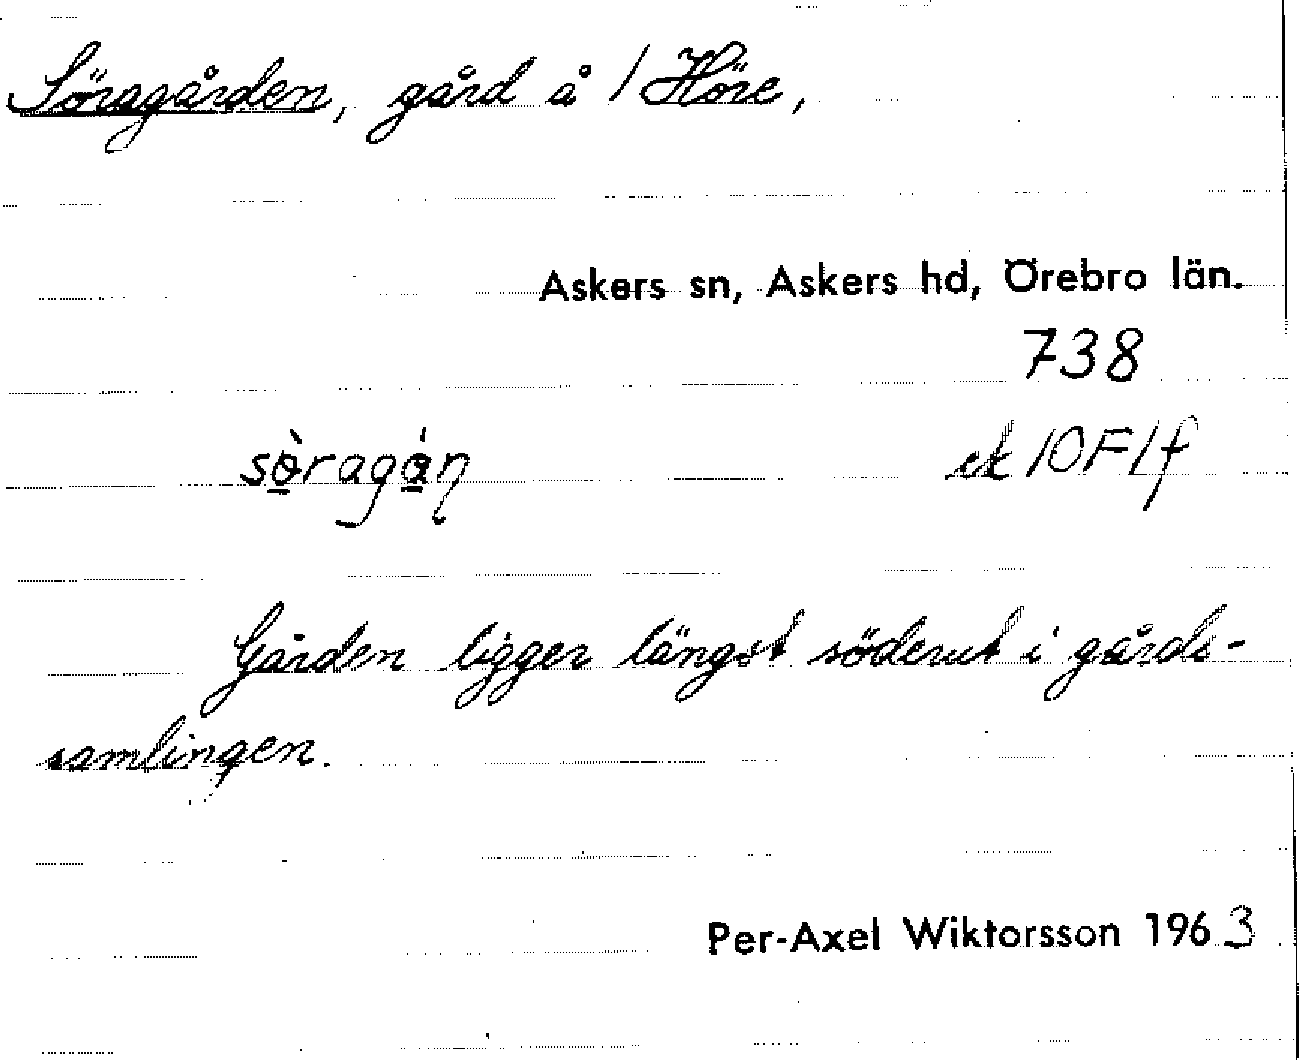 Söragården, gård å / Höre,
Askers sn, Askers hd, Örebro län.
738
sö̀ragá̊ṇ
ek 10F1f
Gården ligger längst söderut i gårds-
samlingen.
Per-Axel Wiktorsson 1963